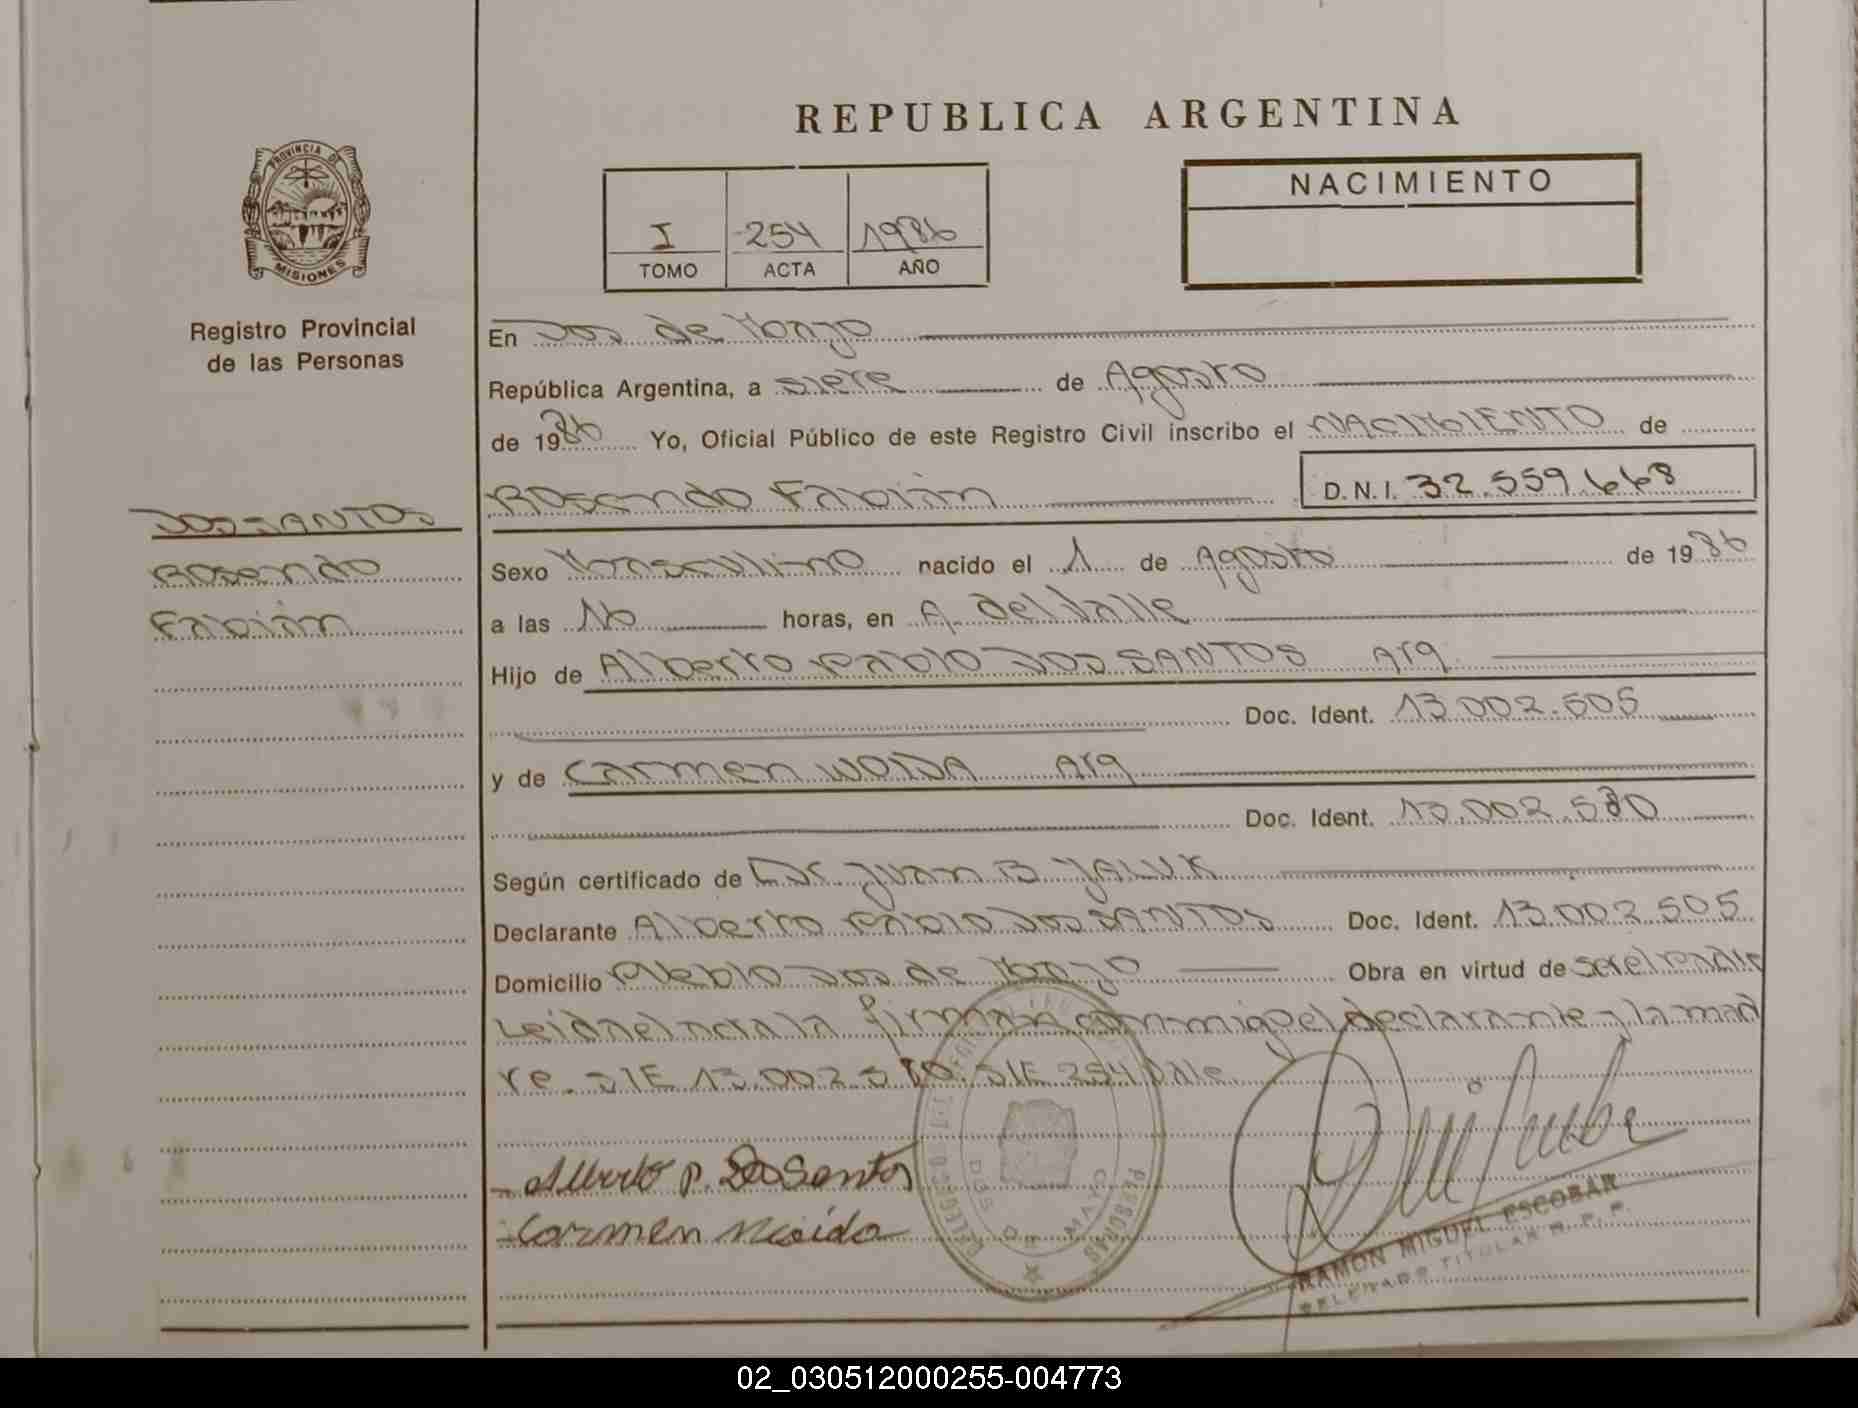 REPUBLICA ARGENTINA
PROVINCIA DE
MISIONES
Registro Provincial
de las Personas
I 254 1986
TOMO ACTA AÑO
NACIMIENTO
En Dos de Mayo
República Argentina, a siete de Agosto
de 1986 Yo, Oficial Público de este Registro Civil inscribo el NACIMIENTO de
Rosendo Fabián D.N.I. 32.559.668
DOS SANTOS
Rosendo
Fabián
Sexo Masculino nacido el 1 de Agosto de 1986
a las 16 horas, en A. del Valle
Hijo de Alberto Pablo DOS SANTOS Arg
Doc. Ident. 13.002.505
y de Carmen Arg
Doc. Ident. 13.002.580
Según certificado de Dr. Juan B. YALUK
Declarante Alberto Pablo Dos SANTOS Doc. Ident. 13.002.505
Domicilio Pueblo Dos de Mayo Obra en virtud de ser el padre
Leida el acta la firman conmigo el declarante y la mad
re. S/E 13.002.580. S/E 254 Vale
Alberto P. Dos Santos
Carmen
DOS DE MAYO
PERSONAS
RAMON MIGUEL ESCOBAR
DELEGADO TITULAR R. P. P.
02_030512000255-004773